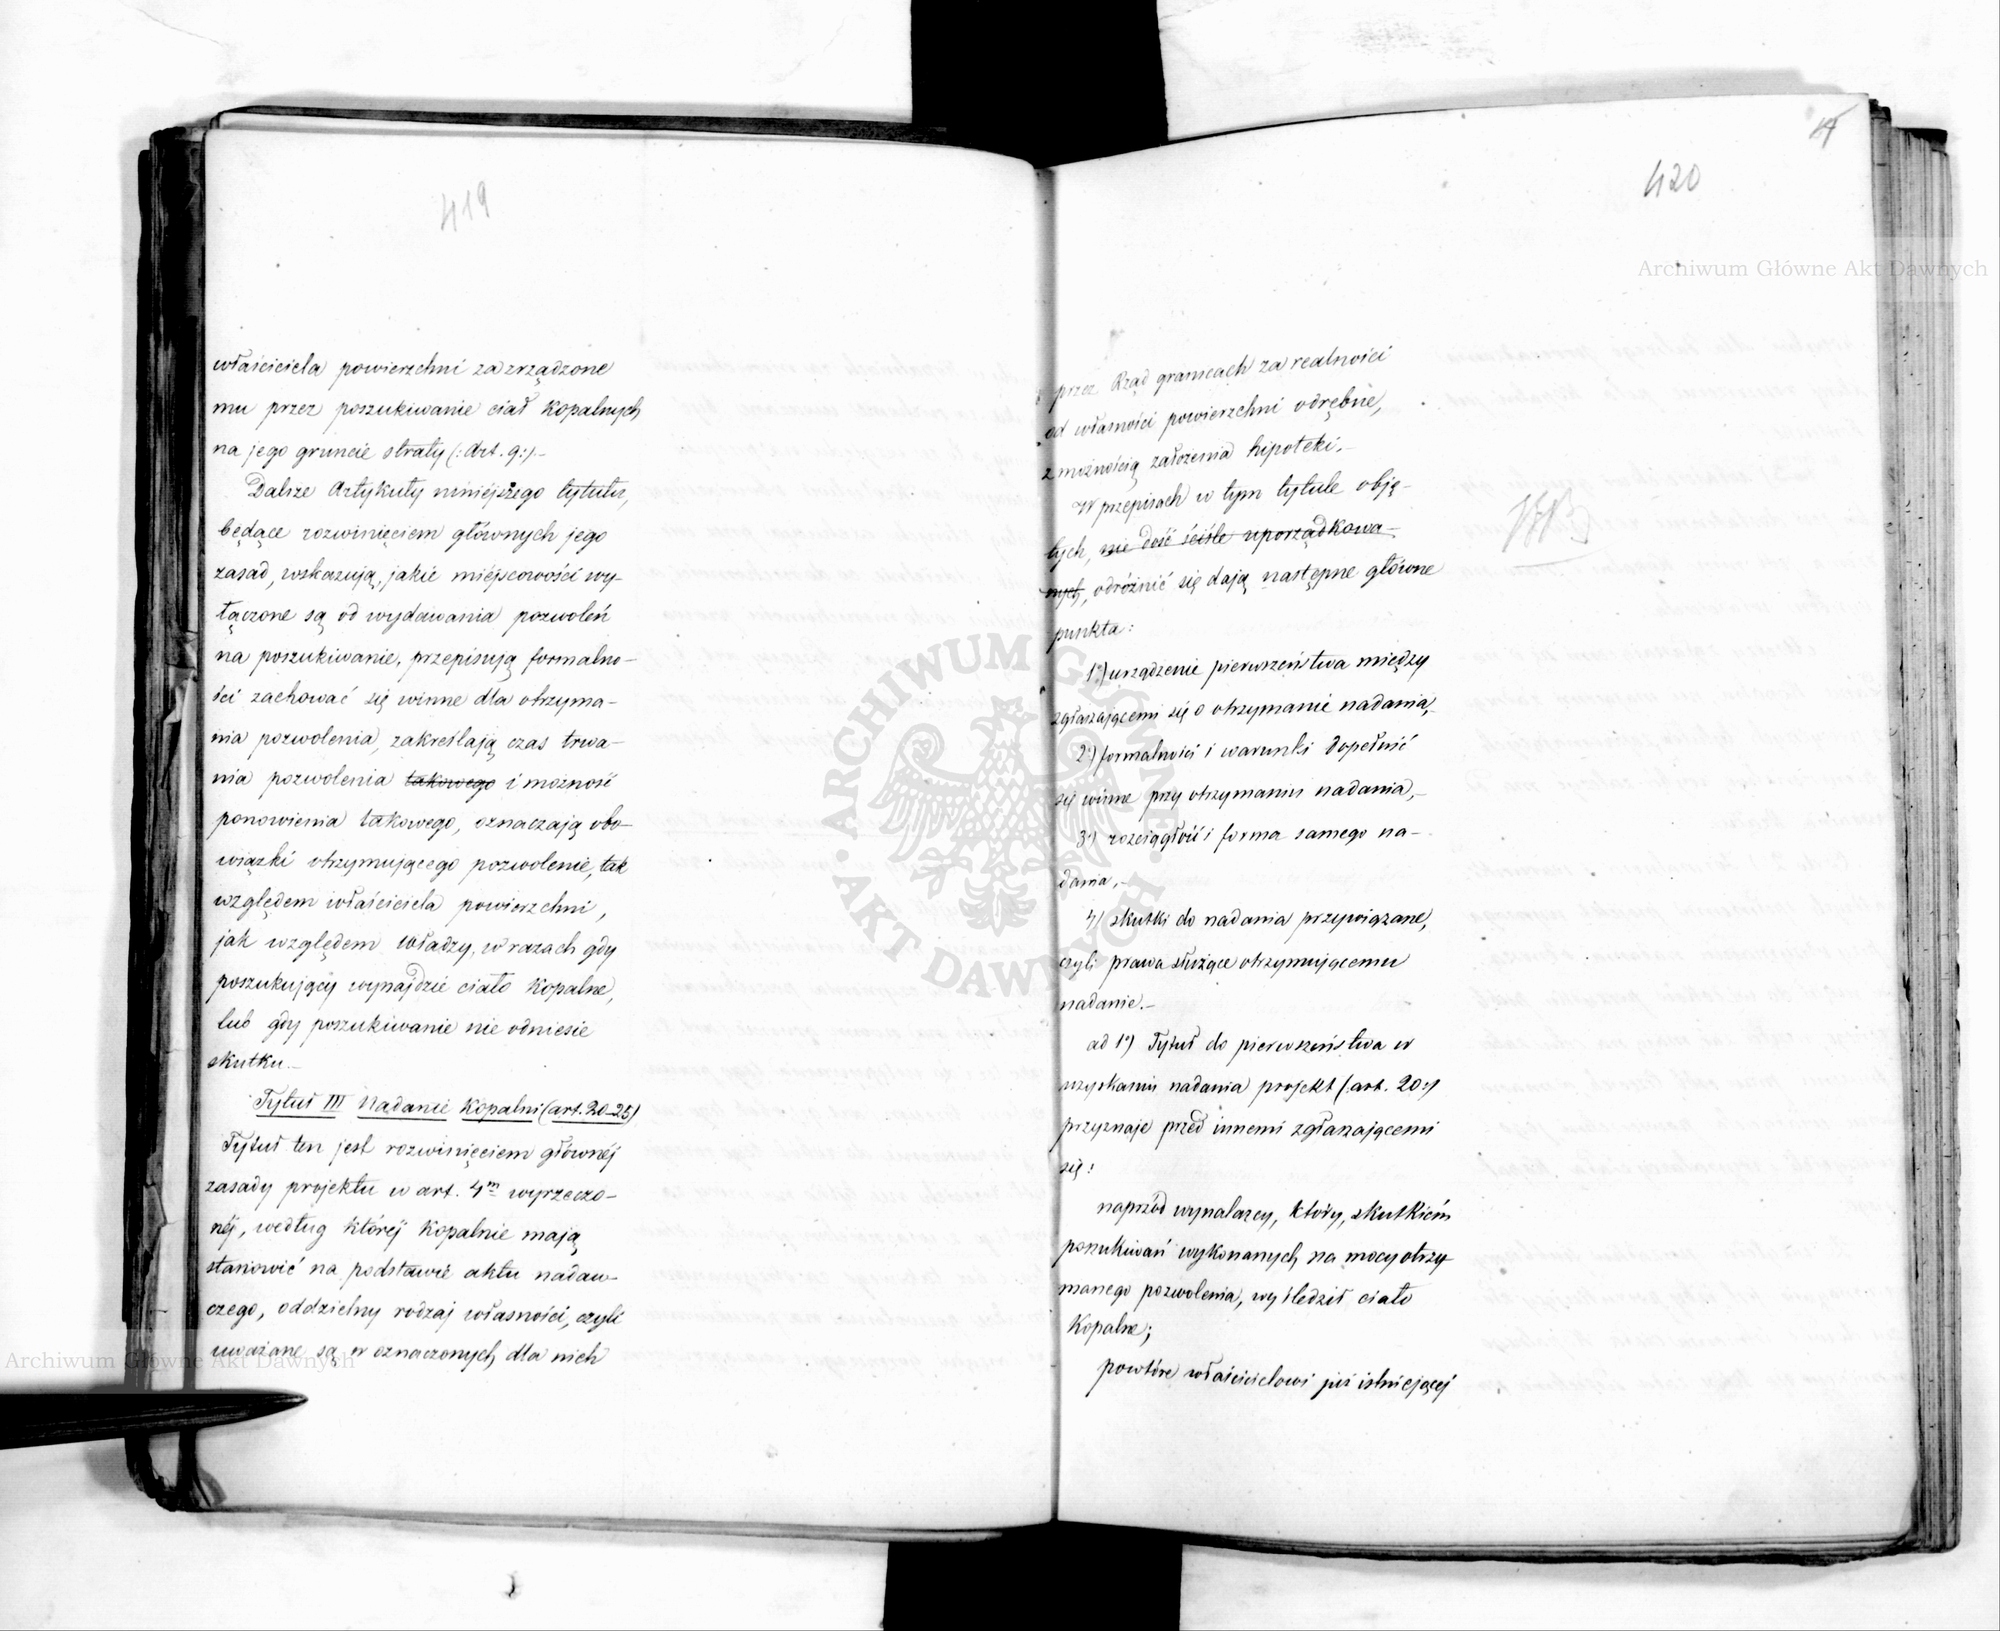 419
właściciela powierzchni za zrządzone
mu przez poszukiwanie ciał kopalnych
na jego gruncie straty (:Art. 9:).–
Dalsze Artykuły niniejszego tytułu,
będące rozwinięciem głównych jego
zasad, wskazują, jakie miéjscowości wy-
łączone są od wydawania pozwoleń
na poszukiwanie, przepisują formalno-
ści zachować się winne dla otrzyma-
nia pozwolenia, zakreślają czas trwa-
nia pozwolenia takowego i możność
ponowienia takowego, oznaczają obo-
wiązki otrzymującego pozwolenie, tak
względem właściciela powierzchni,
jak względem władzy, w razach gdy
poszukujący wynajdzie ciało kopalne,
lub gdy poszukiwanie nie odniesie
skutku.–
Tytuł III Nadanie Kopalni (art. 20–25)
Tytuł ten jest rozwinięciem głównéj
zasady projektu w art. 4m wyrzeczo-
néj, według któréj kopalnie mają
stanowić na podstawie aktu nadaw-
czego, oddzielny rodzaj własności, czyli
uważane są w oznaczonych dla nich
420
przez Rząd granicach za realności
od własności powierzchni odrębne,
z możnością założenia hipoteki.–
W przepisach w tym tytule obję-
tych, nie dość ściśle uporządkowa-
nych, odróżnić się dają następne główne
punkta:
1o) urządzenie pierwszeństwa między
zgłaszającemi się o otrzymanie nadania,–
2o) formalności i warunki dopełnić
się winne przy otrzymaniu nadania,–
3o) rozciągłość i forma samego na-
dania,–
4) skutki do nadania przywiązane,
czyli prawa służące otrzymującemu
nadanie.–
ad 1o) Tytuł do pierwszeństwa w
uzyskaniu nadania projekt (:art. 20:)
przyznaje przed innemi zgłaszającemi
się:
naprzód wynalazcy, który, skutkiem
poszukiwań wykonanych na mocy otrzy-
manego pozwolenia, wyśledził ciało
kopalne;
powtóre właścicielowi już istniejącéj
Archiwum Główne Akt Dawnych
ARCHIWUM GŁÓWNE AKT DAWNYCH
Archiwum Główne Akt Dawnych